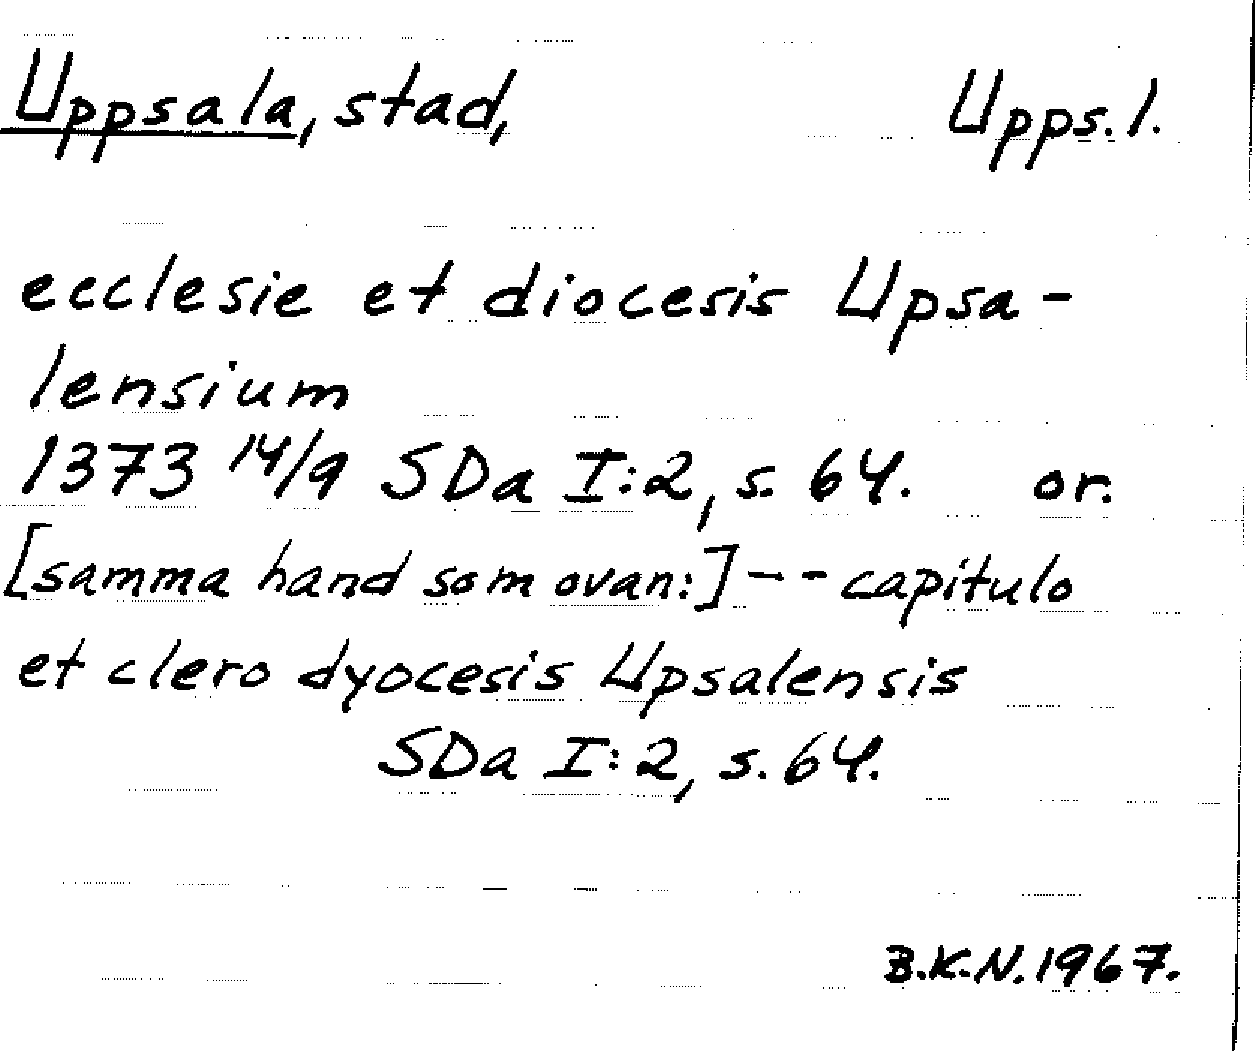 Uppsala, stad, Upps.l.
ecclesie et diocesis Upsa-
lensium
1373 14/9 SDa I:2, s. 64. or.
[samma hand som ovan:] -- capitulo
et clero dyocesis Upsalensis
SDa I:2, s. 64.
B.K.N. 1967.